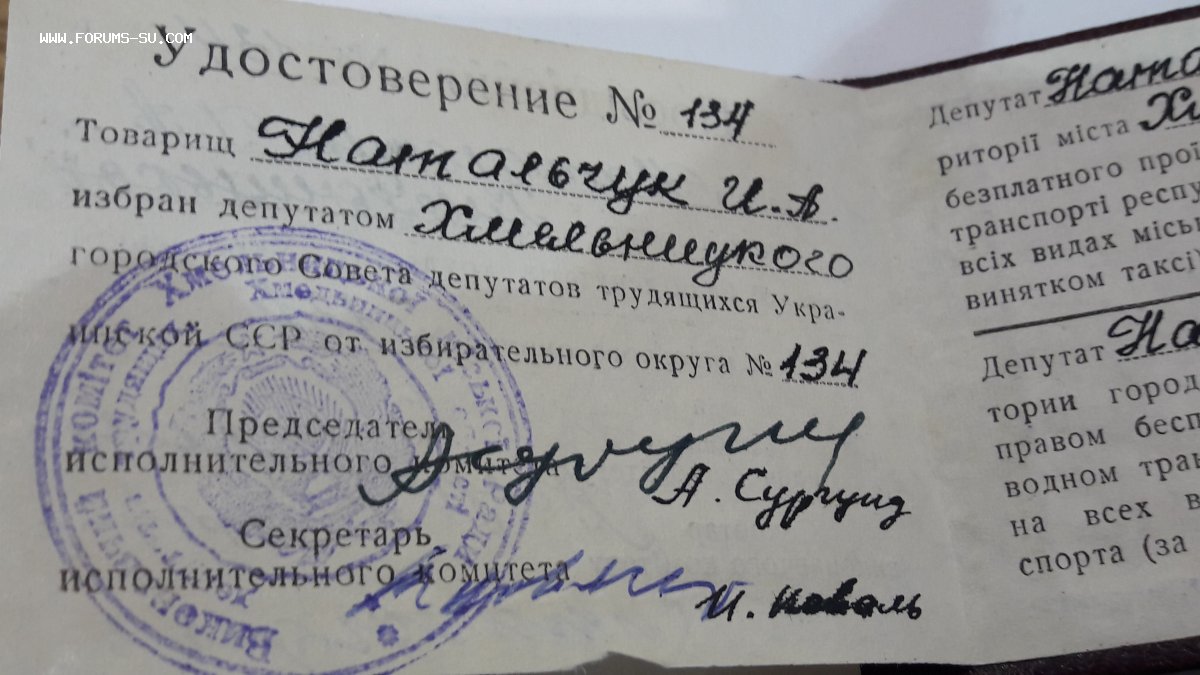 www.forums-su.com
Удостоверение № 134
Товарищ Натальчук И.А.
избран депутатом Хмельницкого
городского Совета депутатов трудящихся Укра-
инской ССР от избирательного округа № 134
Председатель
исполнительного комитета
А. Сургунд
Секретарь
исполнительного комитета
И. Коваль
Депутат Ната
риторії міста Хм
безплатного прої
транспорті респу
всіх видах міськ
винятком таксі)
Депутат На
тории город
правом бесп
водном тран
на всех в
спорта (за